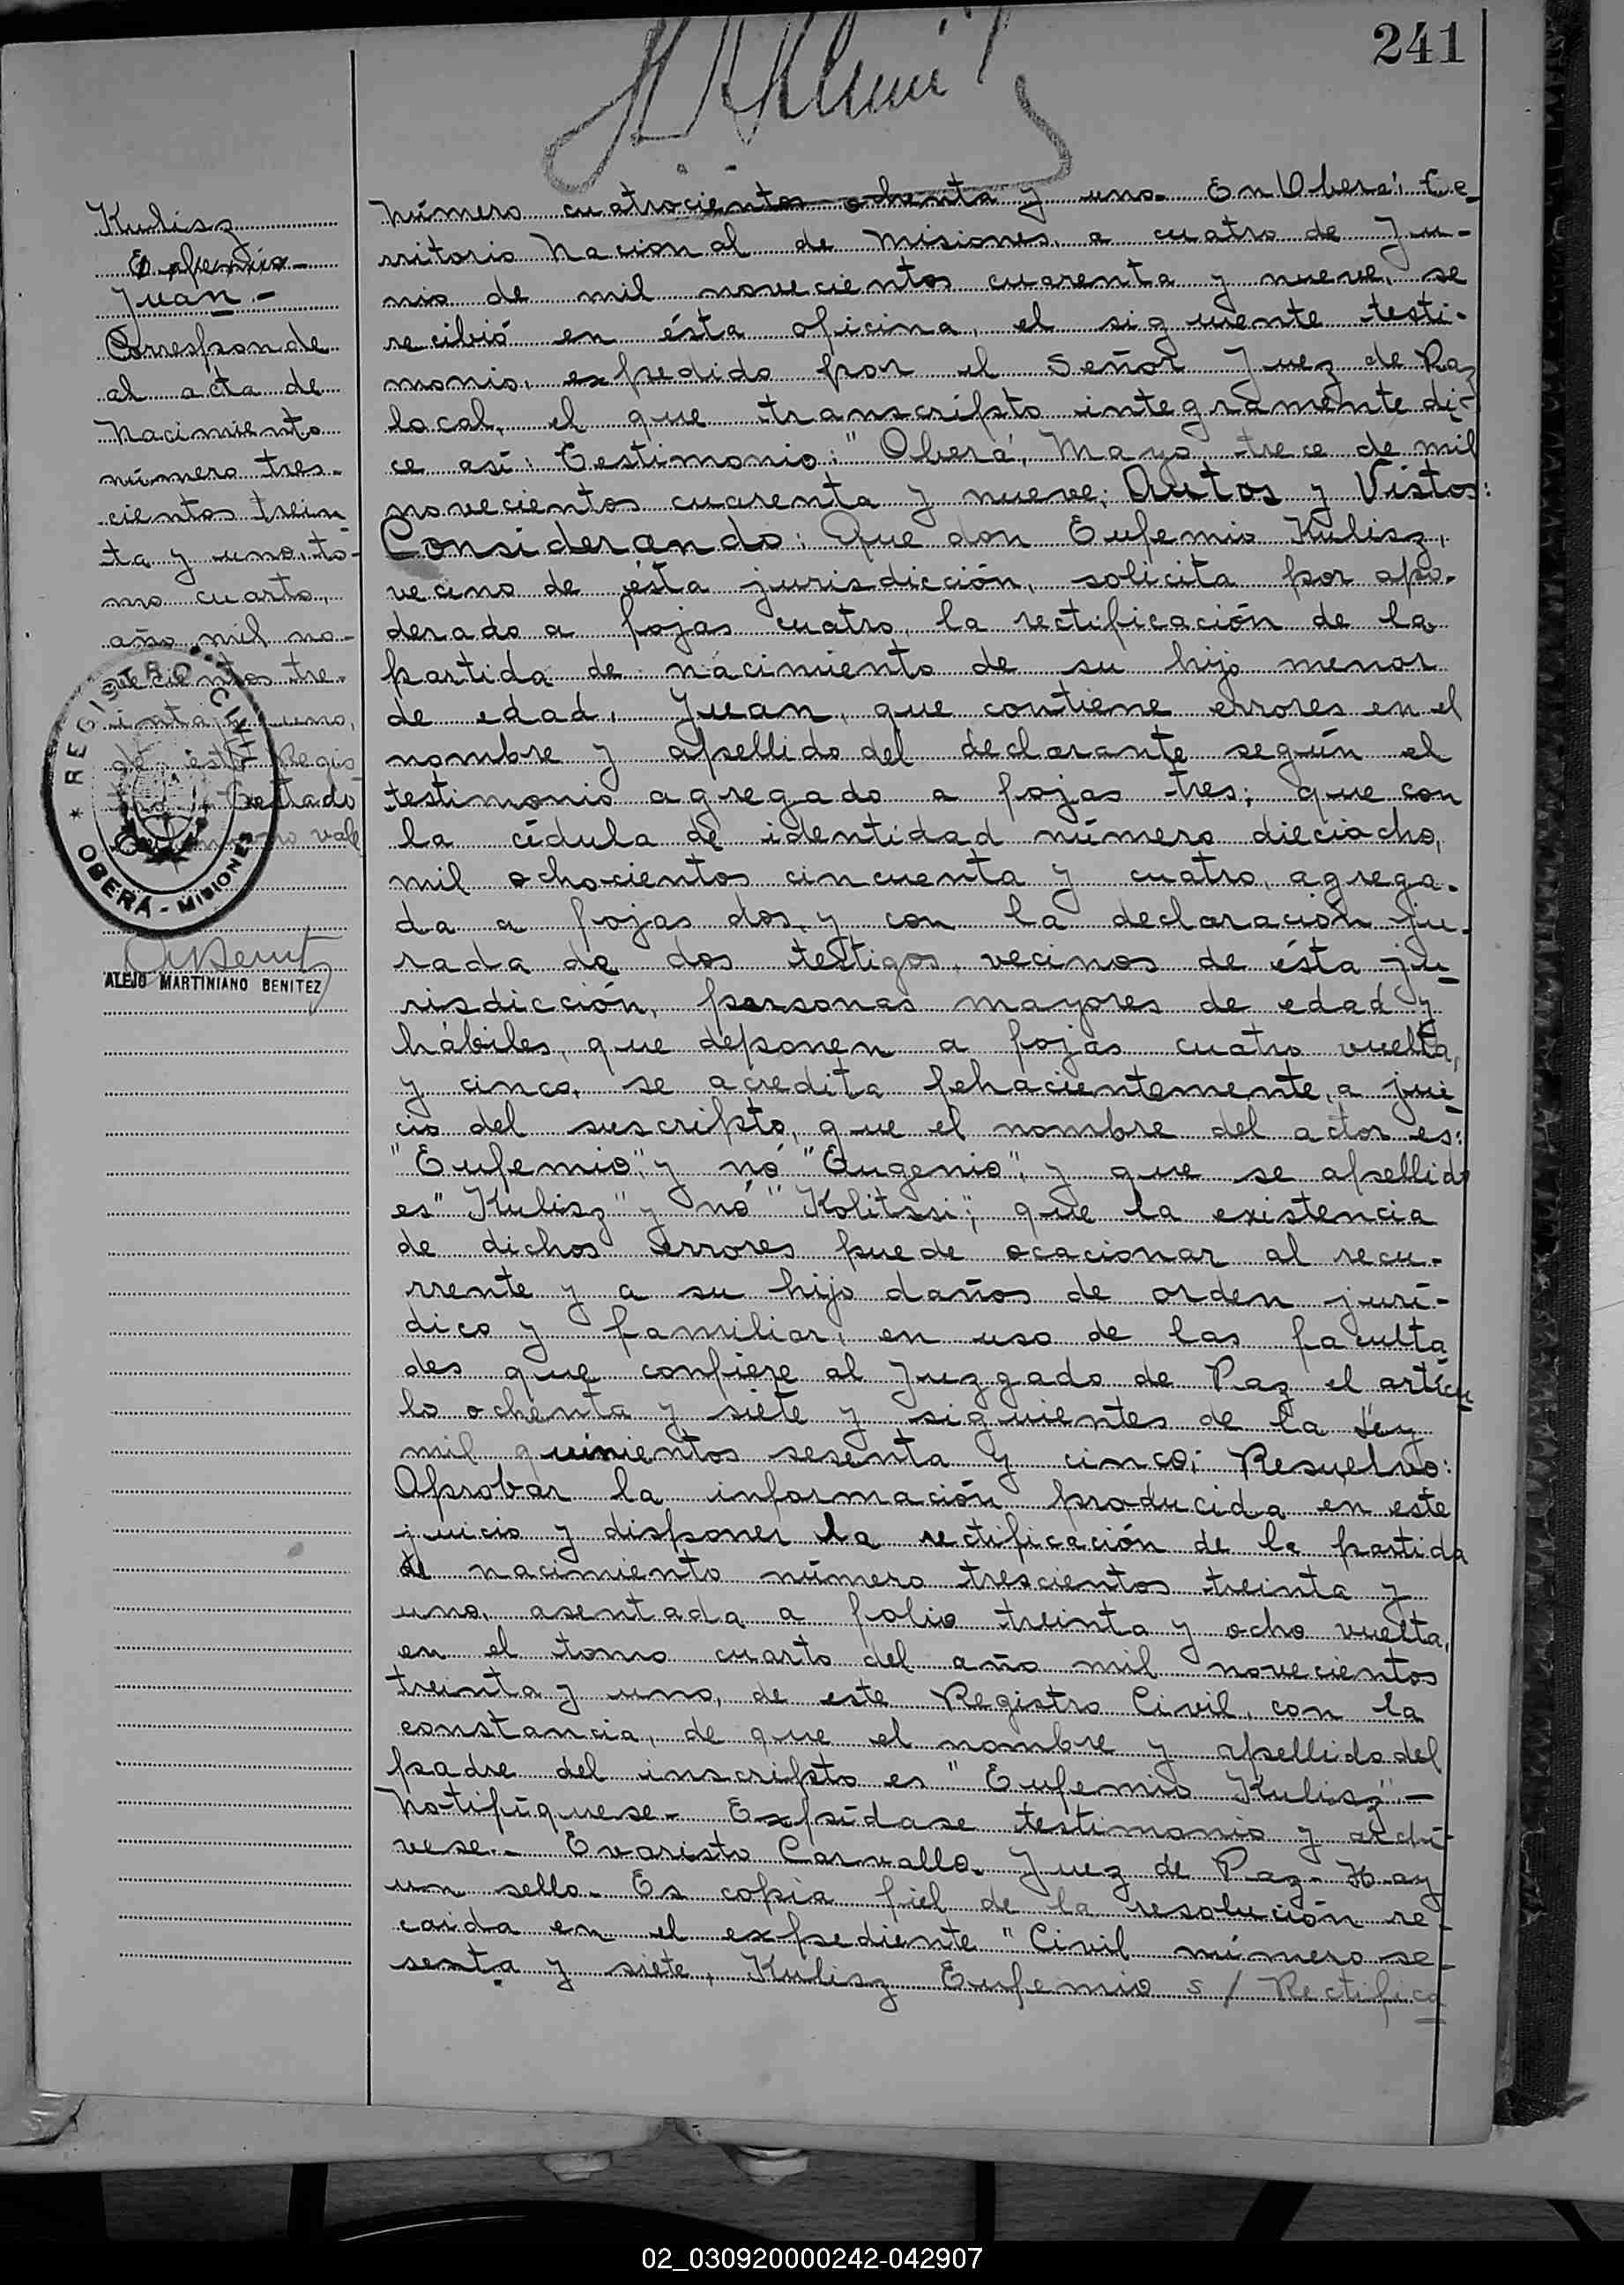 241
Kulisz
Eufemio
Juan.-
Corresponde
al acta de
Nacimiento
número tres-
cientos trein
ta y uno, to-
mo cuarto,
año mil no-
vecientos tre-
inta y uno,
de este Regis
Testado
no vale
REGISTRO CIVIL
* OBERÁ - MISIONES
ALEJO MARTINIANO BENITEZ
Número cuatrocientos ochenta y uno. En Oberá, Te-
rritorio Nacional de Misiones, a cuatro de Ju-
nio de mil novecientos cuarenta y nueve, se
recibió en ésta oficina, el siguiente testi-
monio, expedido por el Señor Juez de Paz
local, el que transcripto integramente di-
ce así: Testimonio: "Oberá, Mayo trece de mil
novecientos cuarenta y nueve; Autos y Vistos:
Considerando: Que don Eufemio Kulisz,
vecino de ésta jurisdicción, solicita por apo-
derado a fojas cuatro, la rectificación de la
partida de nacimiento de su hijo menor
de edad, Juan, que contiene errores en el
nombre y apellido del declarante según el
testimonio agregado a fojas tres; que con
la cédula de identidad número dieciocho,
mil ochocientos cincuenta y cuatro, agrega-
da a fojas dos y con la declaración ju-
rada de dos testigos, vecinos de ésta ju-
risdicción, personas mayores de edad y
hábiles, que deponen a fojas cuatro vuelta,
y cinco, se acredita fehacientemente, a jui-
cio del suscripto, que el nombre del actor es:
"Eufemio", y nó "Eugenio", y que se apellido
es "Kulisz" y nó "Kolitssi"; que la existencia
de dichos errores puede ocacionar al recu-
rrente y a su hijo daños de orden jurí-
dico y familiar, en uso de las faculta
des que confiere al Juzgado de Paz el artícu-
lo ochenta y siete y siguientes de la Ley
mil quinientos sesenta y cinco; Resuelvo:
Aprobar la información producida en este
juicio y disponer la rectificación de la partida
de nacimiento número trescientos treinta y
uno, asentada a folio treinta y ocho vuelta,
en el tomo cuarto del año mil novecientos
treinta y uno, de este Registro Civil, con la
constancia, de que el nombre y apellido del
padre del inscripto es "Eufemio Kulisz".-
Notifíquese.- Expídase testimonio y archí-
vese.- Evaristo Carvallo. Juez de Paz.- Hay
un sello.- Es copia fiel de la resolución re-
caida en el expediente "Civil número se-
senta y siete, Kulisz Eufemio s/ Rectifica
02_030920000242-042907